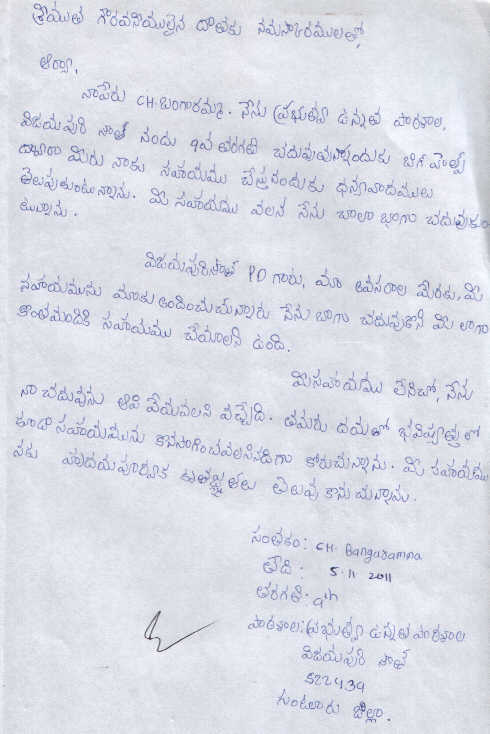 శ్రీయుత గౌరవనీయులైన దాతకు నమస్కారములతో,
ఆర్యా,
నాపేరు CH. బంగారమ్మ. నేను ప్రభుత్వ ఉన్నత పాఠశాల,
విజయపురి సౌత్ నందు 9వ తరగతి చదువుచున్నందుకు బిగ్ హెల్ప్
ద్వారా మీరు నాకు సహాయము చేస్తునందుకు ధన్యవాదములు
తెలుపుకుంటున్నాను. మీ సహాయము వలన నేను చాలా బాగా చదువుకుం
టున్నాను.
విజయపురిసౌత్ PD గారు, మా అవసరాల మేరకు, మీ
సహాయమును మాకు అందించుచున్నారు నేను బాగా చదువుకొని మీ లాగా
కొంతమందికి సహాయము చేయాలని ఉంది.
మీసహాయము లేనిచో, నేను
నా చదువును ఆపి వేయవలసి వచ్చేది. తమరు దయతో భవిష్యత్తులో
కూడా సహాయమును కొనసాగించవలసినదిగా కోరుచున్నాను. మీ సహాయము
నకు హృదయపూర్వక కృతజ్ఞతలు తెలుపు కొనుచున్నాను.
సంతకం: CH. Bangaramma
తేది: 5.11 2011
తరగతి: 9th
పాఠశాల: ప్రభుత్వ ఉన్నత పాఠశాల
విజయపురి సౌత్
522439
గుంటూరు జిల్లా.